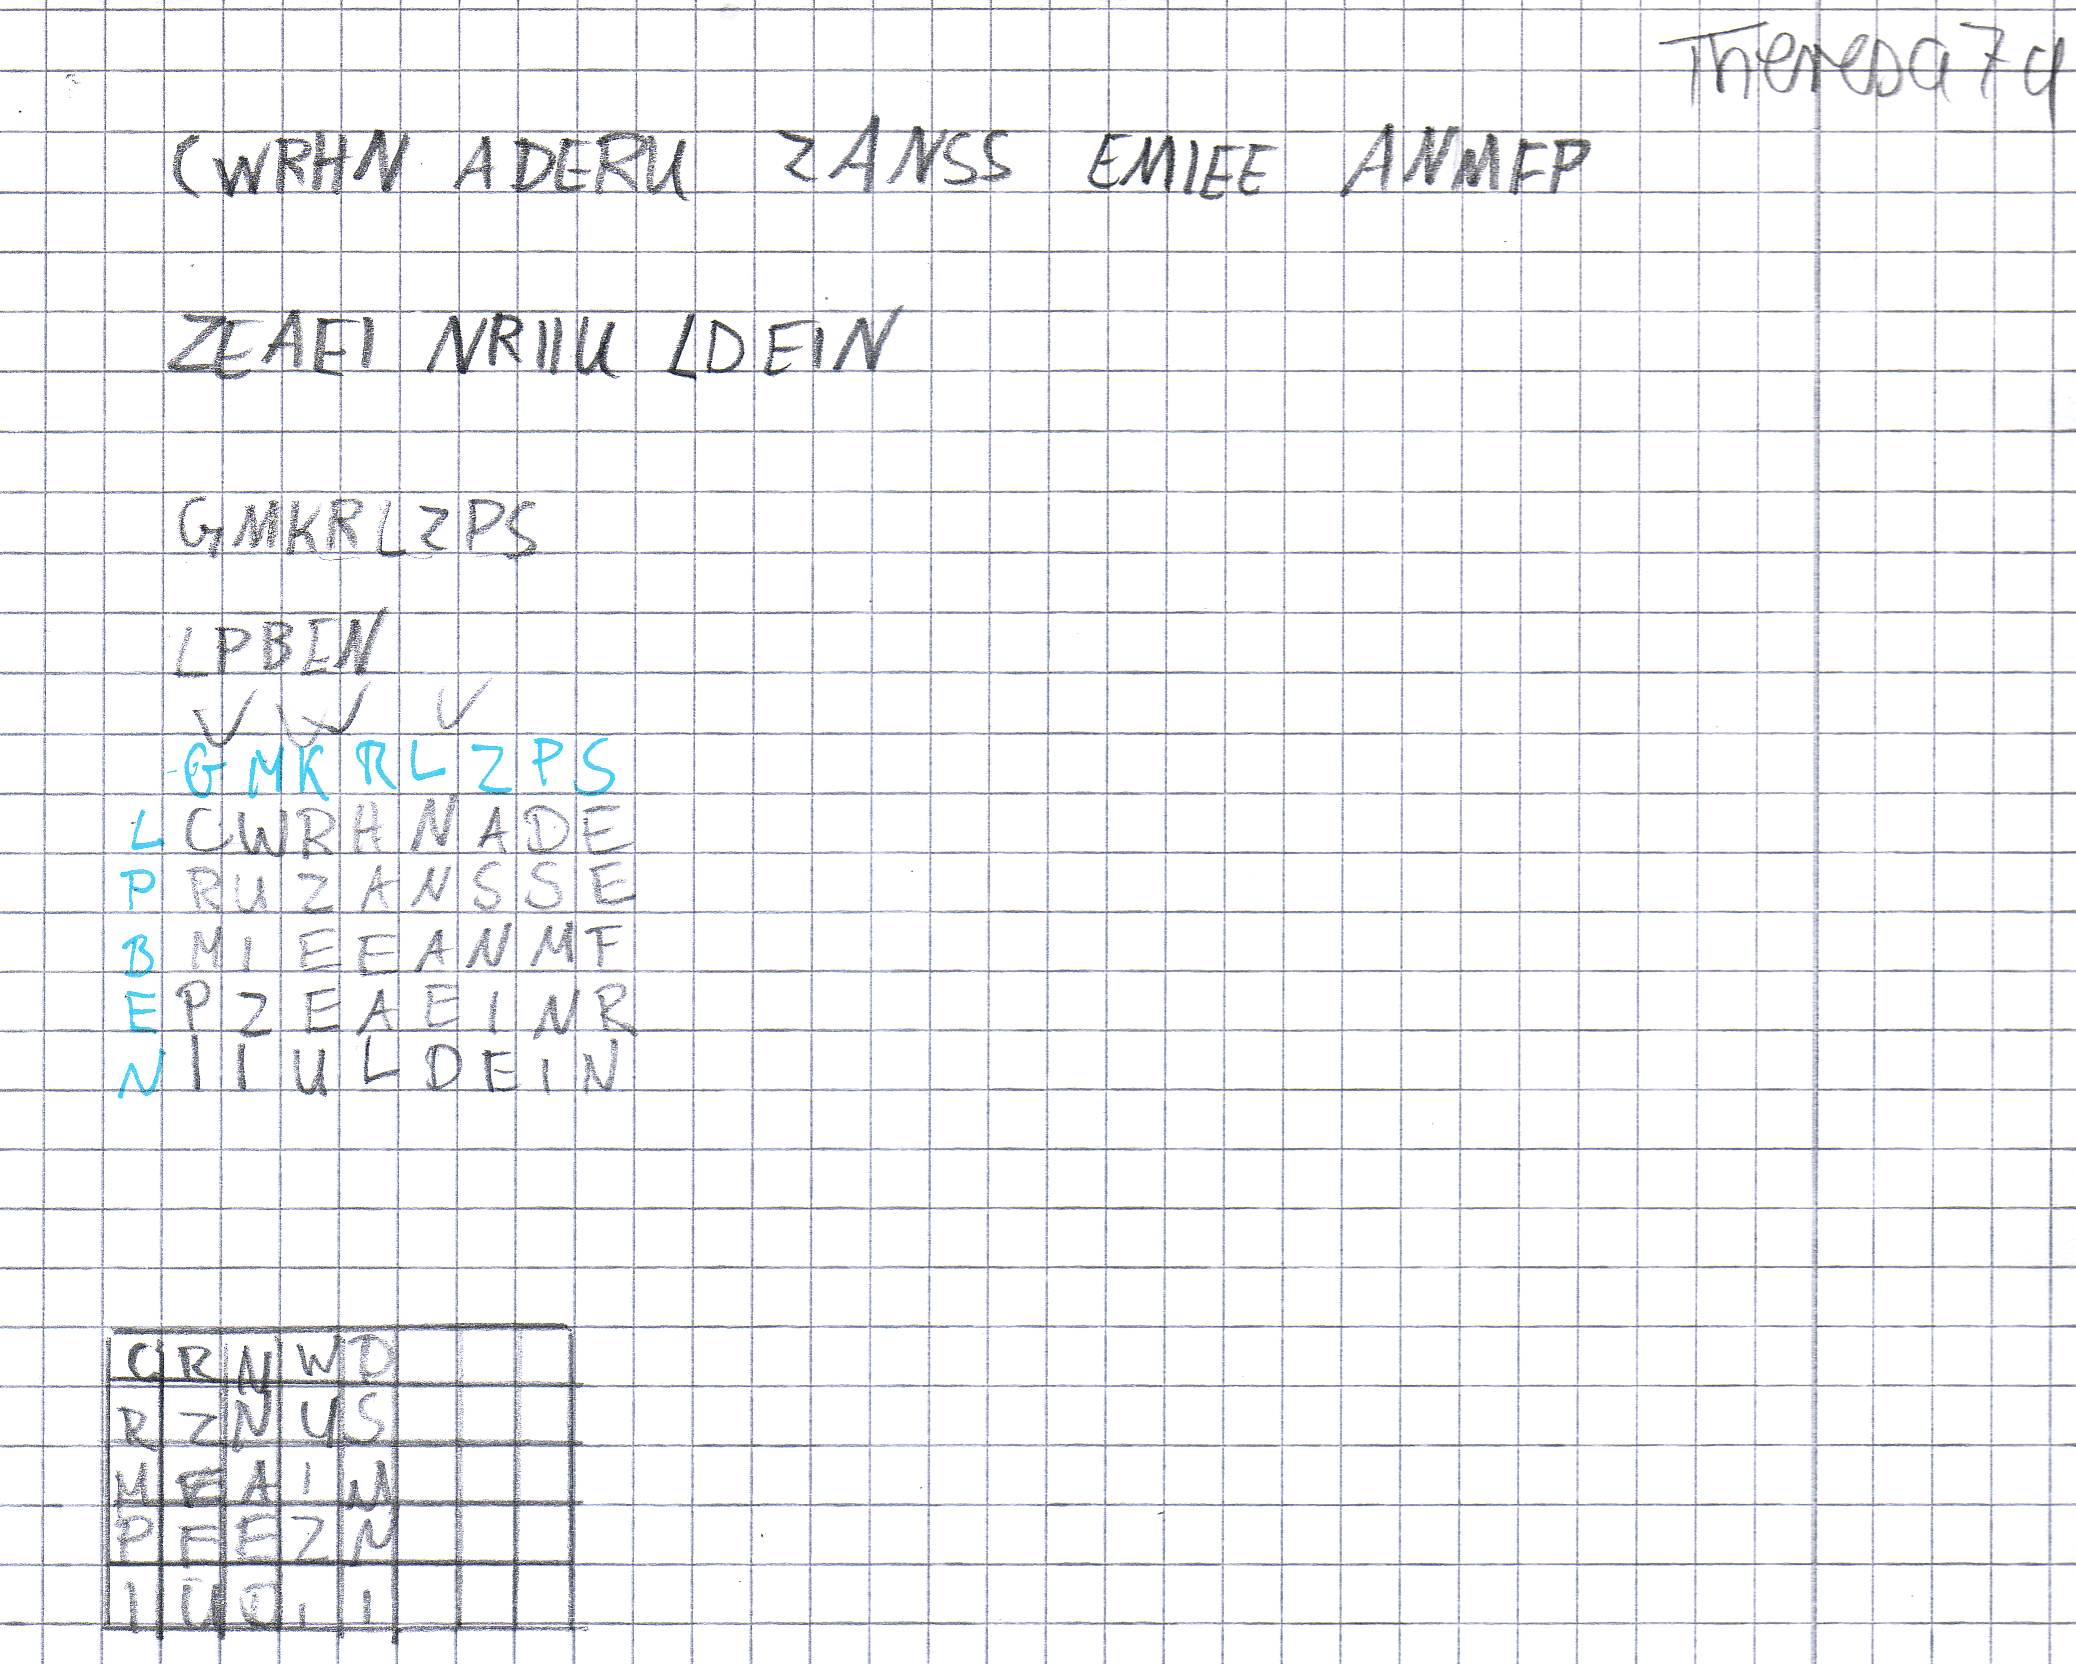 Theresa 7d
CWRHN ADERU ZANSS EMIEE ANMFP
ZEAEI NRIIU LDEIN
GMKRLZPS
LPBEN
G M K R L Z P S
L C W R H N A D E
P R U Z A N S S E
B M I E E A N M F
E P Z E A E I N R
N I I U L D E I N
C R N W D
R Z N U S
M E A I M
P E E Z N
I U D I I